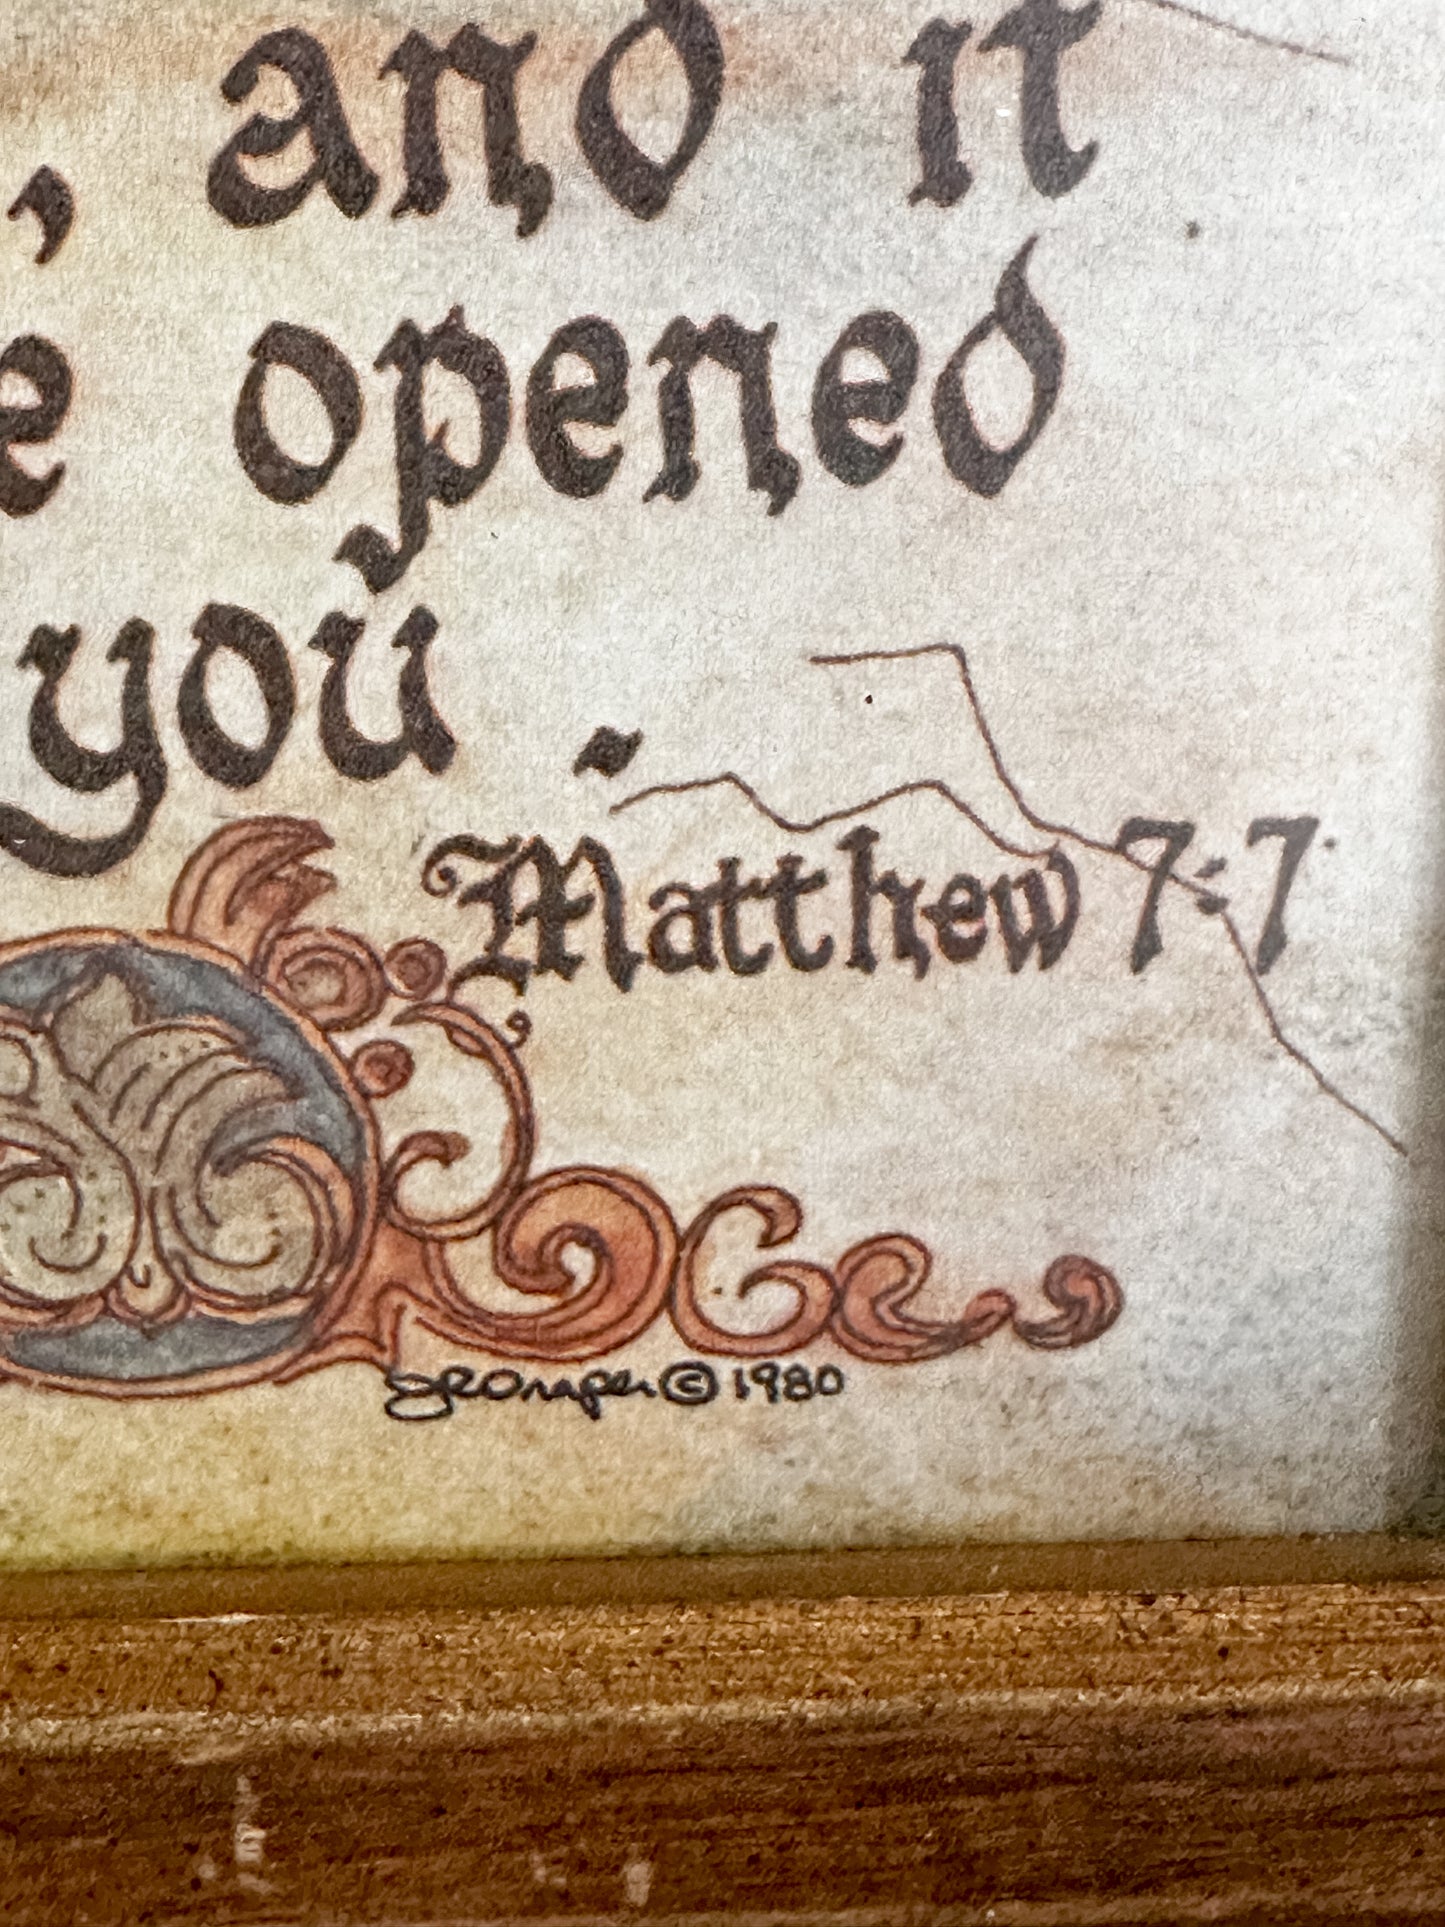 , and it
e opened
you.
Matthew 7:7
© 1980